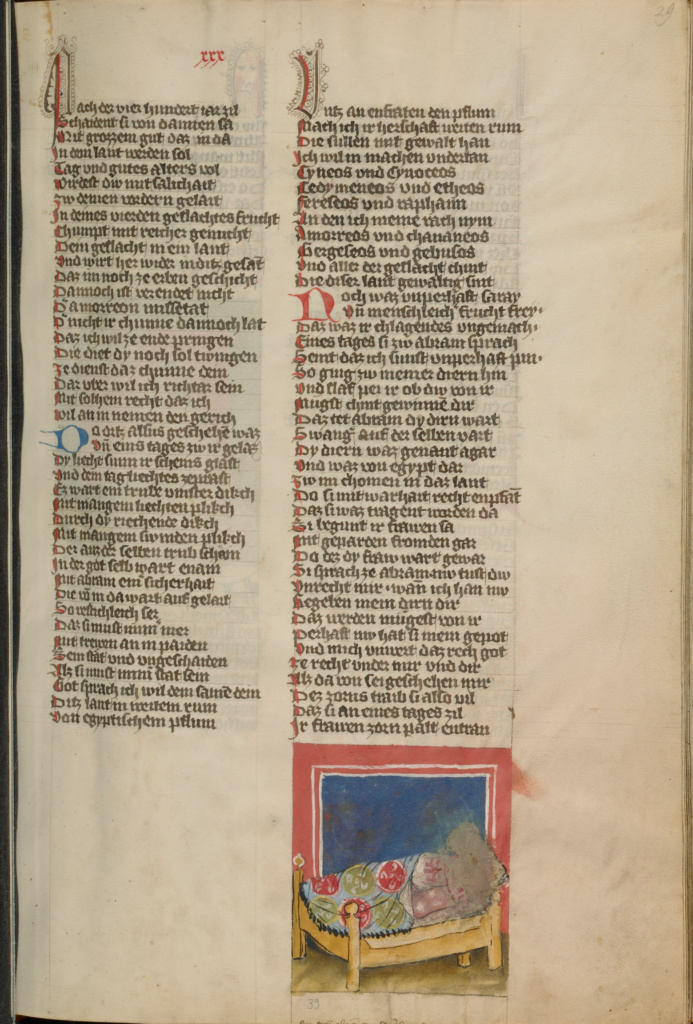 29
xxx
Nach der vier hundert iar zil
Schaident si von dannen sa
Mit grozzem gut daz in da
In dem lant werden sol
Tag und gutes alters vol
Wirdest dw mit salichait
Zw deinen vordern gelait
In deines vierden geslachtes frucht
Chumpt mit reicher genucht
Dem geslacht in ein lant
Und wirt her wider in ditz gesant
Daz im noch ze erben geschicht
Dannoch ist verendet nicht
D amorreon missetat
D nicht ir chunne dannoch lat
Daz ich wil ze ende pringen
Die diet dy noch sol twingen
Ze dienst daz chunne dem
Daz vber wil ich richtar sein
Mit solhem recht daz ich
Wil an in nemen den gerich
Do ditz alsus geschehen waz
Vn eins tages zw ir gelaz
Dy liecht sunn ir scheins glast
Und dem tag liechtes zeprast
Ez wart ein trube vinster dikch
Mit mangem liechten plikch
Durch dy riechende dikch
Mit mangem swinden plikch
Der auz der selben trub schain
In der got selb wart enain
Mit abram ein sicherhait
Die von im da wart auf gelait
So vestichleich ser
Daz si must imm mer
Mit trewen an in paiden
Sein stat und ungeschaiden
Als si must imm stat sein
Got sprach ich wil dem samen dein
Ditz lant in weitem rum
Von egyptischem pflum
Untz an eufraten den pflum
Mach ich ir herschaft weiten rum
Die sullen mit gewalt han
Ich wil in machen undertan
Cyneos und Cynoceos
Cedymeneos und etheos
Fereseos und raphaim
An den ich meine rach nym
Amorreos und chananeos
Gergeseos und gebuseos
Und aller der geslacht chint
Die diser lant gewaltig sint
Noch waz unperhaft saray
Vn menschleich frucht frey
Daz waz ir chlagendes ungemach
Eines tages si zw abram sprach
Seint daz ich sunst unperhaft pin
So ging zw meiner diern hin
Und slaf pei ir ob dw von ir
Mugst chint gewinne dir
Daz tet abram dy dirn wart
Swang auf der selben vart
Dy diern waz genant agar
Und waz von egypt dar
Zw im chomen in daz lant
Do si mit warhait recht enpfant
Daz si waz tragent worden da
Si begunt ir frawen sa
Mit geparden fromden gar
Do dez dy fraw wart gewar
Si sprach ze abram nw tust dw
Unrecht mir wan ich han nw
Gegeben mein dirn dir
Daz werden mugest von ir
Perhaft nw hat si mein gepot
Und mich unwert daz rech got
Ze recht under mir und dir
Alz da von sei geschehen mir
Dez zorns traib si also vil
Daz si an eines tages zil
Ir frawen zorn palt entran
39